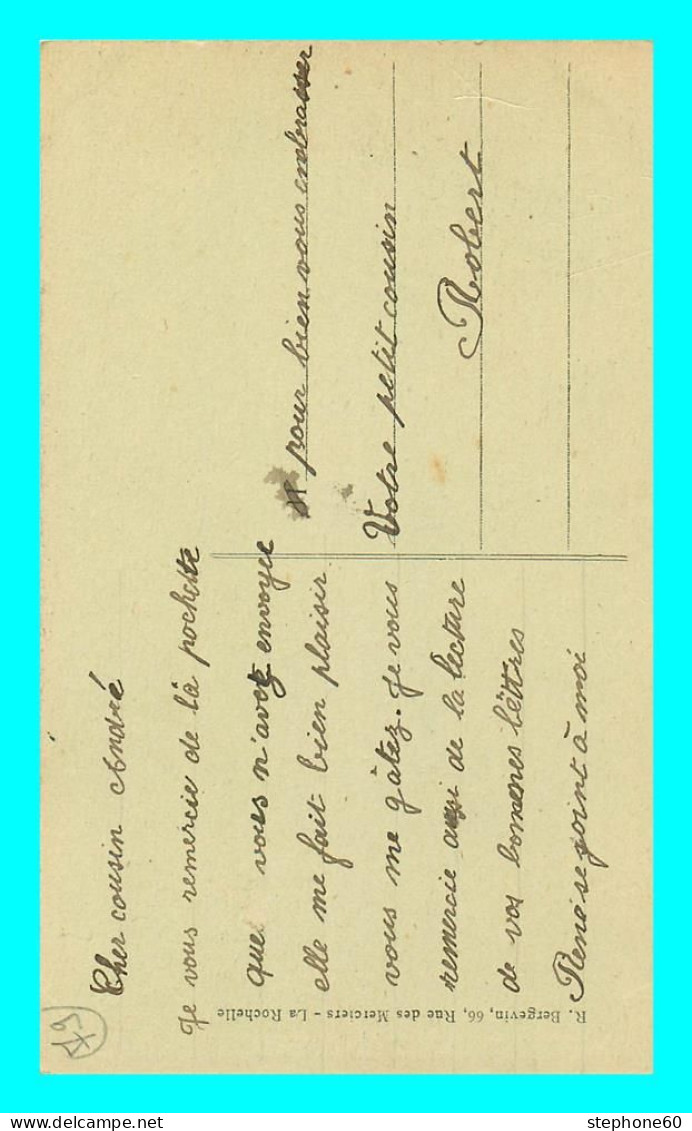 Cher cousin André
Je vous remercie de là pochette
que vous n'avez envoyée
elle me fait bien plaisir
vous me gâtez. Je vous
remercie aussi de la lecture
de vos bonnes lettres
René se joint à moi
pour bien vous embrasser
Votre petit cousin
Robert
R. Bergevin, 66, Rue des Merciers - La Rochelle
A3
stephone60